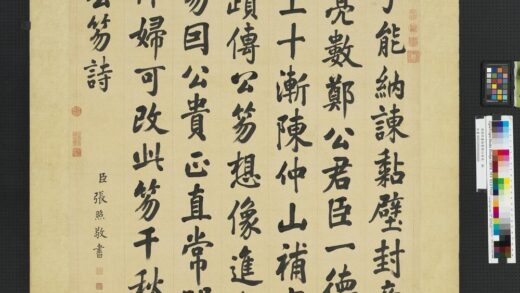 能納諫黏壁封
亮數鄭公君臣一德
上十漸陳仲山補
蹟傳公笏想像進
因公貴正直常
婦可改此笏千秋
公笏詩
臣張照敬書